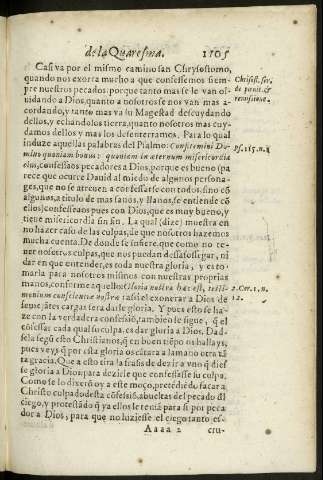 de la Quaresma. 1105
Casi va por el mismo camino san Chrysostomo,
quando nos exorta mucho a que confessemos siem-
pre nuestros pecados: porque tanto mas se le van ol-
uidando a Dios, quanto a nosotros se nos van mas a-
cordando, y tanto mas va su Magestad descuydando
dellos, y echandolos tierra, quanto nosotros mas cuy-
damos dellos y mas los desenterramos. Para lo qual
induze aquellas palabras del Psalmo: Confitemini Do-
mino quoniam bonus: quoniam in aternum misericordia
eius, Confessaos pecadores a Dios, porque es bueno (pa
rece que ocurre Dauid al miedo de algunos persona-
ges, que no se atreuen a confessarse con todos, sino cõ
algunos, a titulo de mas sanos, y llanos, se entiende cõ
ellos) confessaos pues con Dios, que es muy bueno, y
tiene misericordia sin fin. La qual (dize) muestra en
no hazer caso de las culpas, de que nosotros hazemos
mucha cuenta. De donde se infiere, que como no te-
ner nosotros culpas, que nos puedan dessassossegar, ni
dar en que entender, es toda nuestra gloria, y es to-
marla para nosotros mismos con nuestras proprias
manos, conforme aquello: Gloria nostra hæc est, testi-
monium conscientiæ nostræ: assi el exonerar a Dios de
semejãtes cargas sera darle gloria. Y pues esto se ha-
ze con la verdadera confessiõ, tambien se sigue, q̃ el
cõfessar cada qual su culpa, es dar gloria a Dios. Dad-
sela segũ esto Christianos, q̃ en buen tiẽpo os hallays,
pues veys q̃ por esta gloria os cõtara a la mano otra tã
ta gracia. Que a esto tira la frasis de dezir a vno q̃ dies-
se gloria a Dios para dezirle que confessasse su culpa.
Como se lo dixerõ oy a este moço, pretẽdiẽdo facar a
Christo culpado desta cõfessiõ, absueltas del pecado al
ciego, y protestãdo q̃ ya ellos le teniã para si por peca
dor a Dios, para que no luziesse el ciego tanto es-
Aaaa 2 cru-
Chrisost. ser.
de pœnit. &
remissione.
Ps. 115. n. 1
2. Cor. 1. n.
12.